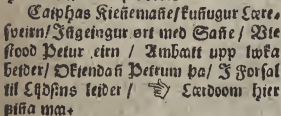 Caiphas Kieñemañe/kuñugur Lære-
sveirn/Jñgeingur ørt med Sañe / Vte
stood Petur eirn / Ambætt upp lwka
beider/Oktendañ Petrum þa/ J Forsal
til Lydsins leider / ☞ Lærdoom hier
piña ma.